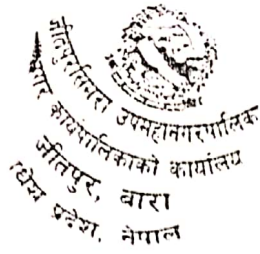 जीतपुरसिमरा उपमहानगरपालिका
नगर कार्यपालिकाको कार्यालय
जीतपुर, बारा
मधेश प्रदेश, नेपाल